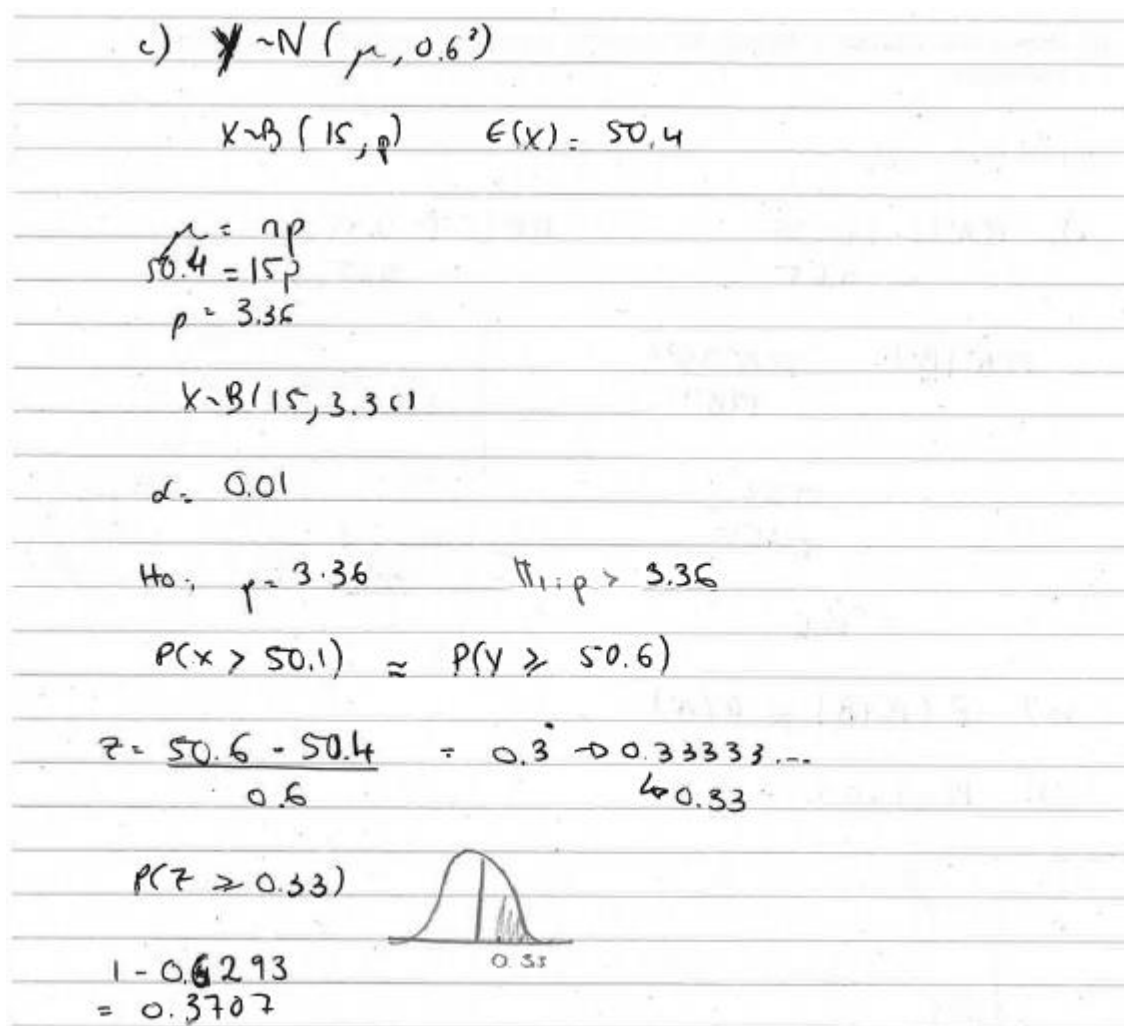 c) Y ~ N ( μ, 0.6²)
X~B ( 15, p) E(X) = 50.4
μ = np
50.4 = 15p
p = 3.36
X~B(15, 3.36)
α = 0.01
H0: p = 3.36 H1: p > 3.36
P(X > 50.1) ≈ P(Y ≥ 50.6)
z = 50.6 - 50.4 = 0.3̇ → 0.33333....
0.6 ↳ 0.33
P(Z ≥ 0.33)
0.33
1 - 0.6293
= 0.3707